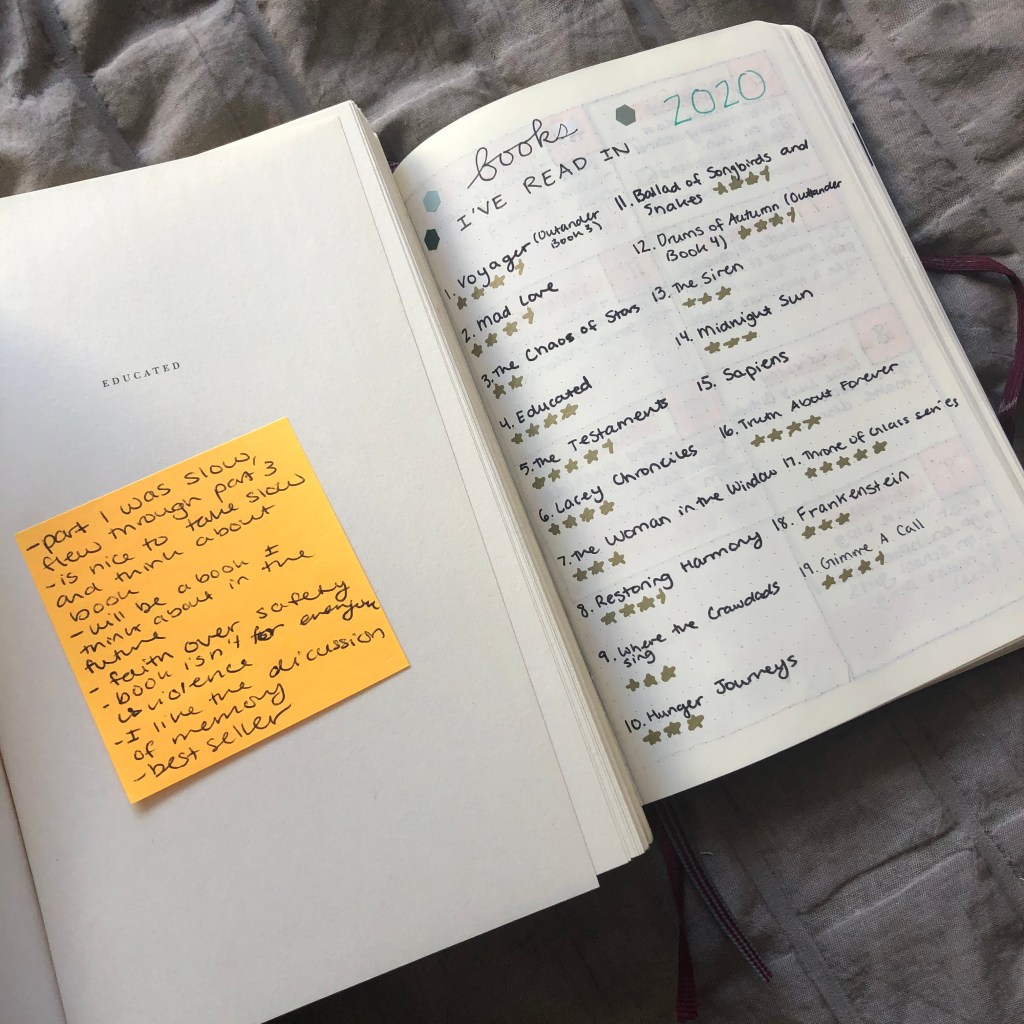 EDUCATED
-part 1 was slow,
flew through part 3
-is nice to take slow
and think about
book
-will be a book I
think about in the
future
-faith over safety
-book isn't for everyone
↳ violence
-I like the discussion
of memory
-best seller
books
I'VE READ IN
2020
1. Voyager (Outander
Book 3)
2. Mad Love
3. The Chaos of Stars
4. Educated
5. The Testaments
6. Lacey Chronciles
7. The Woman in the Window
8. Restoring Harmony
9. Where the Crawdads
sing
10. Hunger Journeys
11. Ballad of Songbirds and
Snakes
12. Drums of Autumn (Outlander
Book 4)
13. The Siren
14. Midnight Sun
15. Sapiens
16. Truth About Forever
17. Throne of Glass series
18. Frankenstein
19. Gimme A Call